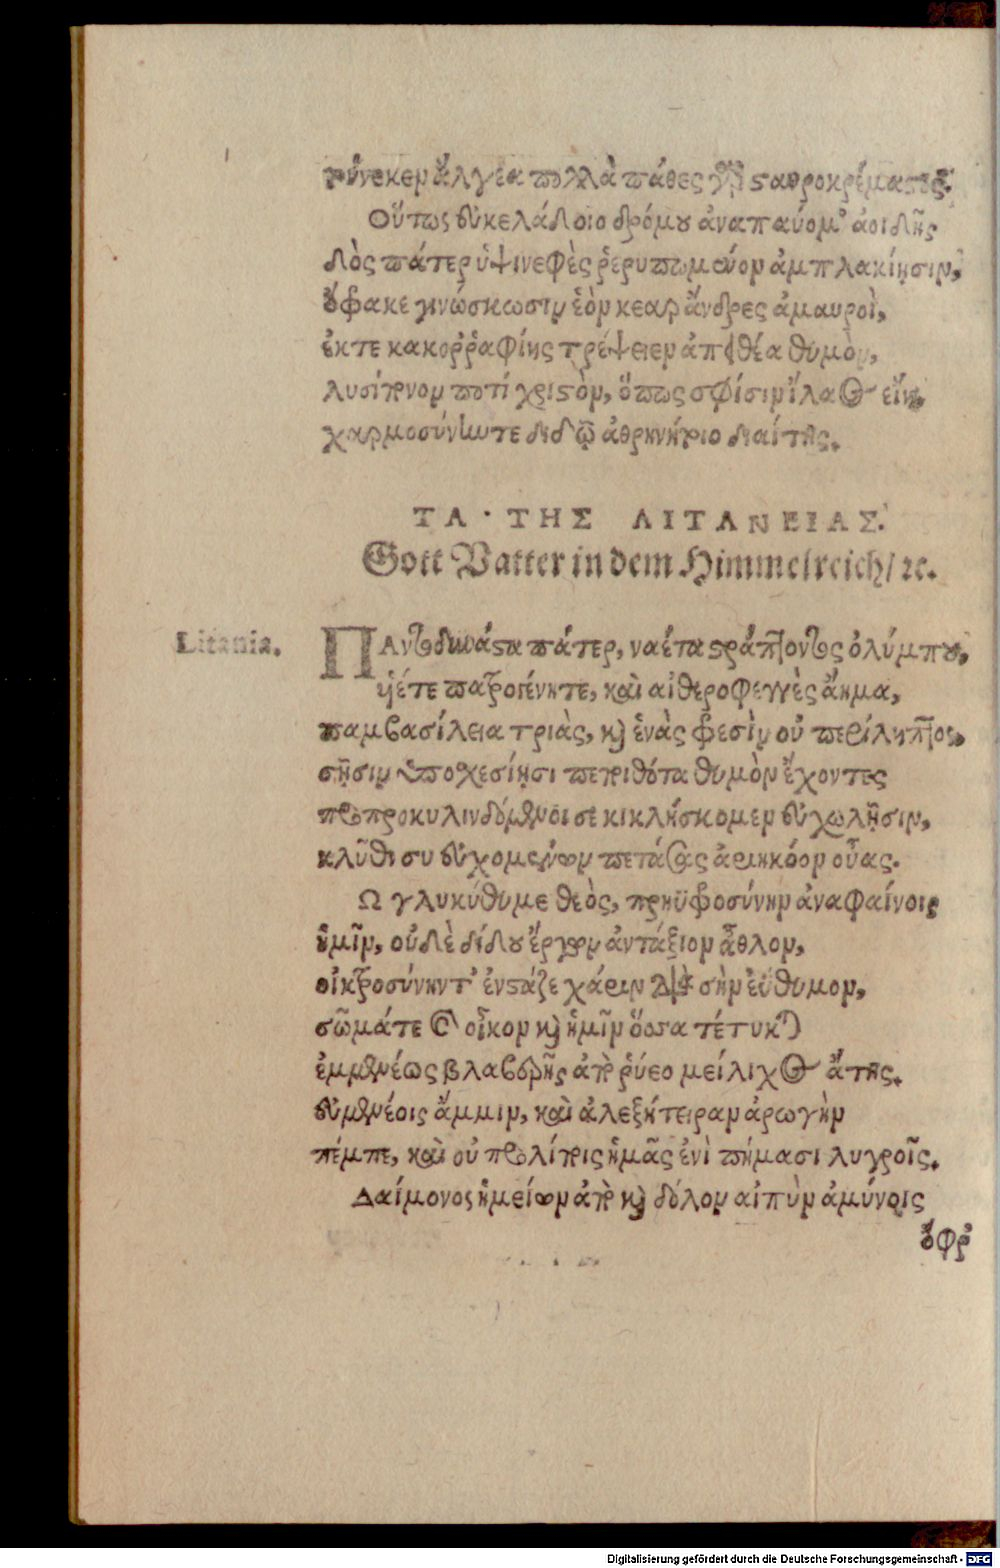 τούνεκεν ἄλγεα πολλὰ πάθες
Οὕτως εὐκελάδοιο δρόμου ἀναπαύομ' ἀοιδῆς
δὸς πάτερ ὑψινεφὲς ῥερυπωμένον ἀμπλακίῃσιν,
ὄφρακε γινώσκωσιν ἑὸν κεαρ ἄνδρες ἀμαυροὶ,
ἐκτε κακοῤῥαφίης τρέψειεν ἀπεχθέα θυμὸν,
λυσίπονον ποτί χριστὸν, ὅπως σφίσιν ἵλαος εἴη,
χαρμοσύνην τε διδῷ ἀθρηνήτοιο διαίτης.
ΤΑ ΤΗΣ ΛΙΤΑΝΕΙΑΣ.
Gott Vatter in dem Himmelreich/ ꝛc.
Litania.
ΠΑντοδυνάστα πάτερ, ναέτα στράπτοντος ὀλύμπου,
υἱέτε πατρογένητε, καὶ αἰθεροφεγγὲς ἄημα,
παμβασίλεια τριὰς, καὶ ἑνὰς φρεσὶν οὐ περίληπτος,
σῇσιν ὑποσχεσίῃσι πεποιθότα θυμὸν ἔχοντες
προπροκυλινδόμενοι σε κικλήσκομεν εὐχωλῇσιν,
κλῦθι συ εὐχομένων πετάσας ἀριηκόον οὖας.
Ω γλυκύθυμε θεὸς, πρηϋφροσύνην ἀναφαίνοις
ἡμῖν, οὐδὲ δίδου ἔργων ἀντάξιον ἆθλον,
οἰκτροσύνηντ' ἐνστάζε χάριν διὰ σὴν ἐΰθυμον,
σῶμάτε καὶ οἶκον καὶ ἡμῖν ὅσσα τέτυκται
ἐμμενέως βλαβερῆς ἀπὸ ῥύεο μείλιχος ἄτης.
εὐμενέοις ἄμμιν, καὶ ἀλεξήτειραν ἀρωγὴν
πέμπε, καὶ οὐ προλίποις ἡμᾶς ἐνὶ πήμασι λυγροῖς.
Δαίμονος ἡμείων ἀπὸ καὶ δόλον αἰπὺν ἀμύνοις
ὄφρ'
Digitalisierung gefördert durch die Deutsche Forschungsgemeinschaft - DFG